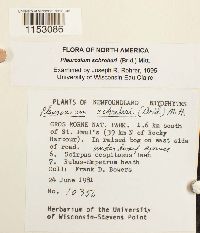 1153086
FLORA OF NORTH AMERICA
Pleurozium schreberi (Brid.) Mitt.
Examined by Joseph R. Rohrer, 1995
University of Wisconsin Eau Claire
PLANTS OF NEWFOUNDLAND BRYOPHYTES
Pleurozium schreberi (Brid.) Mitt.
GROS MORNE NAT. PARK. 1.6 km south
of St. Paul's (39 km N of Rocky
Harbour). In raised bog on west side
of road.
6. Scirpus cespitosus
7. Rubus-Empetrum heath
Coll: Frank D. Bowers
24 June 1981
No. 10356
Herbarium of the University
of Wisconsin-Stevens Point